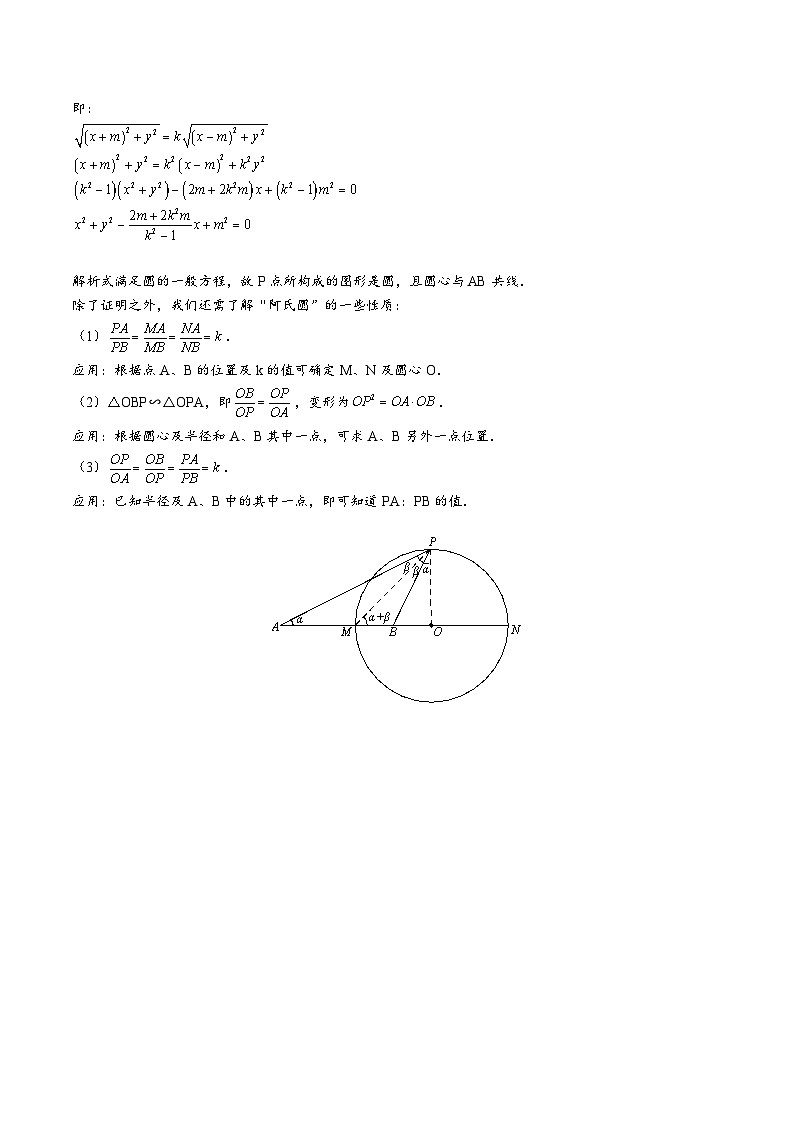 即：
√((x+m)²+y²) = k√((x−m)²+y²)
(x+m)²+y² = k²(x−m)²+k²y²
(k²−1)(x²+y²)−(2m+2k²m)x+(k²−1)m² = 0
x²+y²−(2m+2k²m)/(k²−1)x+m² = 0
解析式满足圆的一般方程，故P点所构成的图形是圆，且圆心与AB共线．
除了证明之外，我们还需了解“阿氏圆”的一些性质：
（1）PA/PB=MA/MB=NA/NB=k．
应用：根据点A、B的位置及k的值可确定M、N及圆心O．
（2）△OBP∽△OPA，即OB/OP=OP/OA，变形为OP²=OA·OB．
应用：根据圆心及半径和A、B其中一点，可求A、B另外一点位置．
（3）OP/OA=OB/OP=PA/PB=k．
应用：已知半径及A、B中的其中一点，即可知道PA：PB的值．
P
β β α
A α M α+β B O N